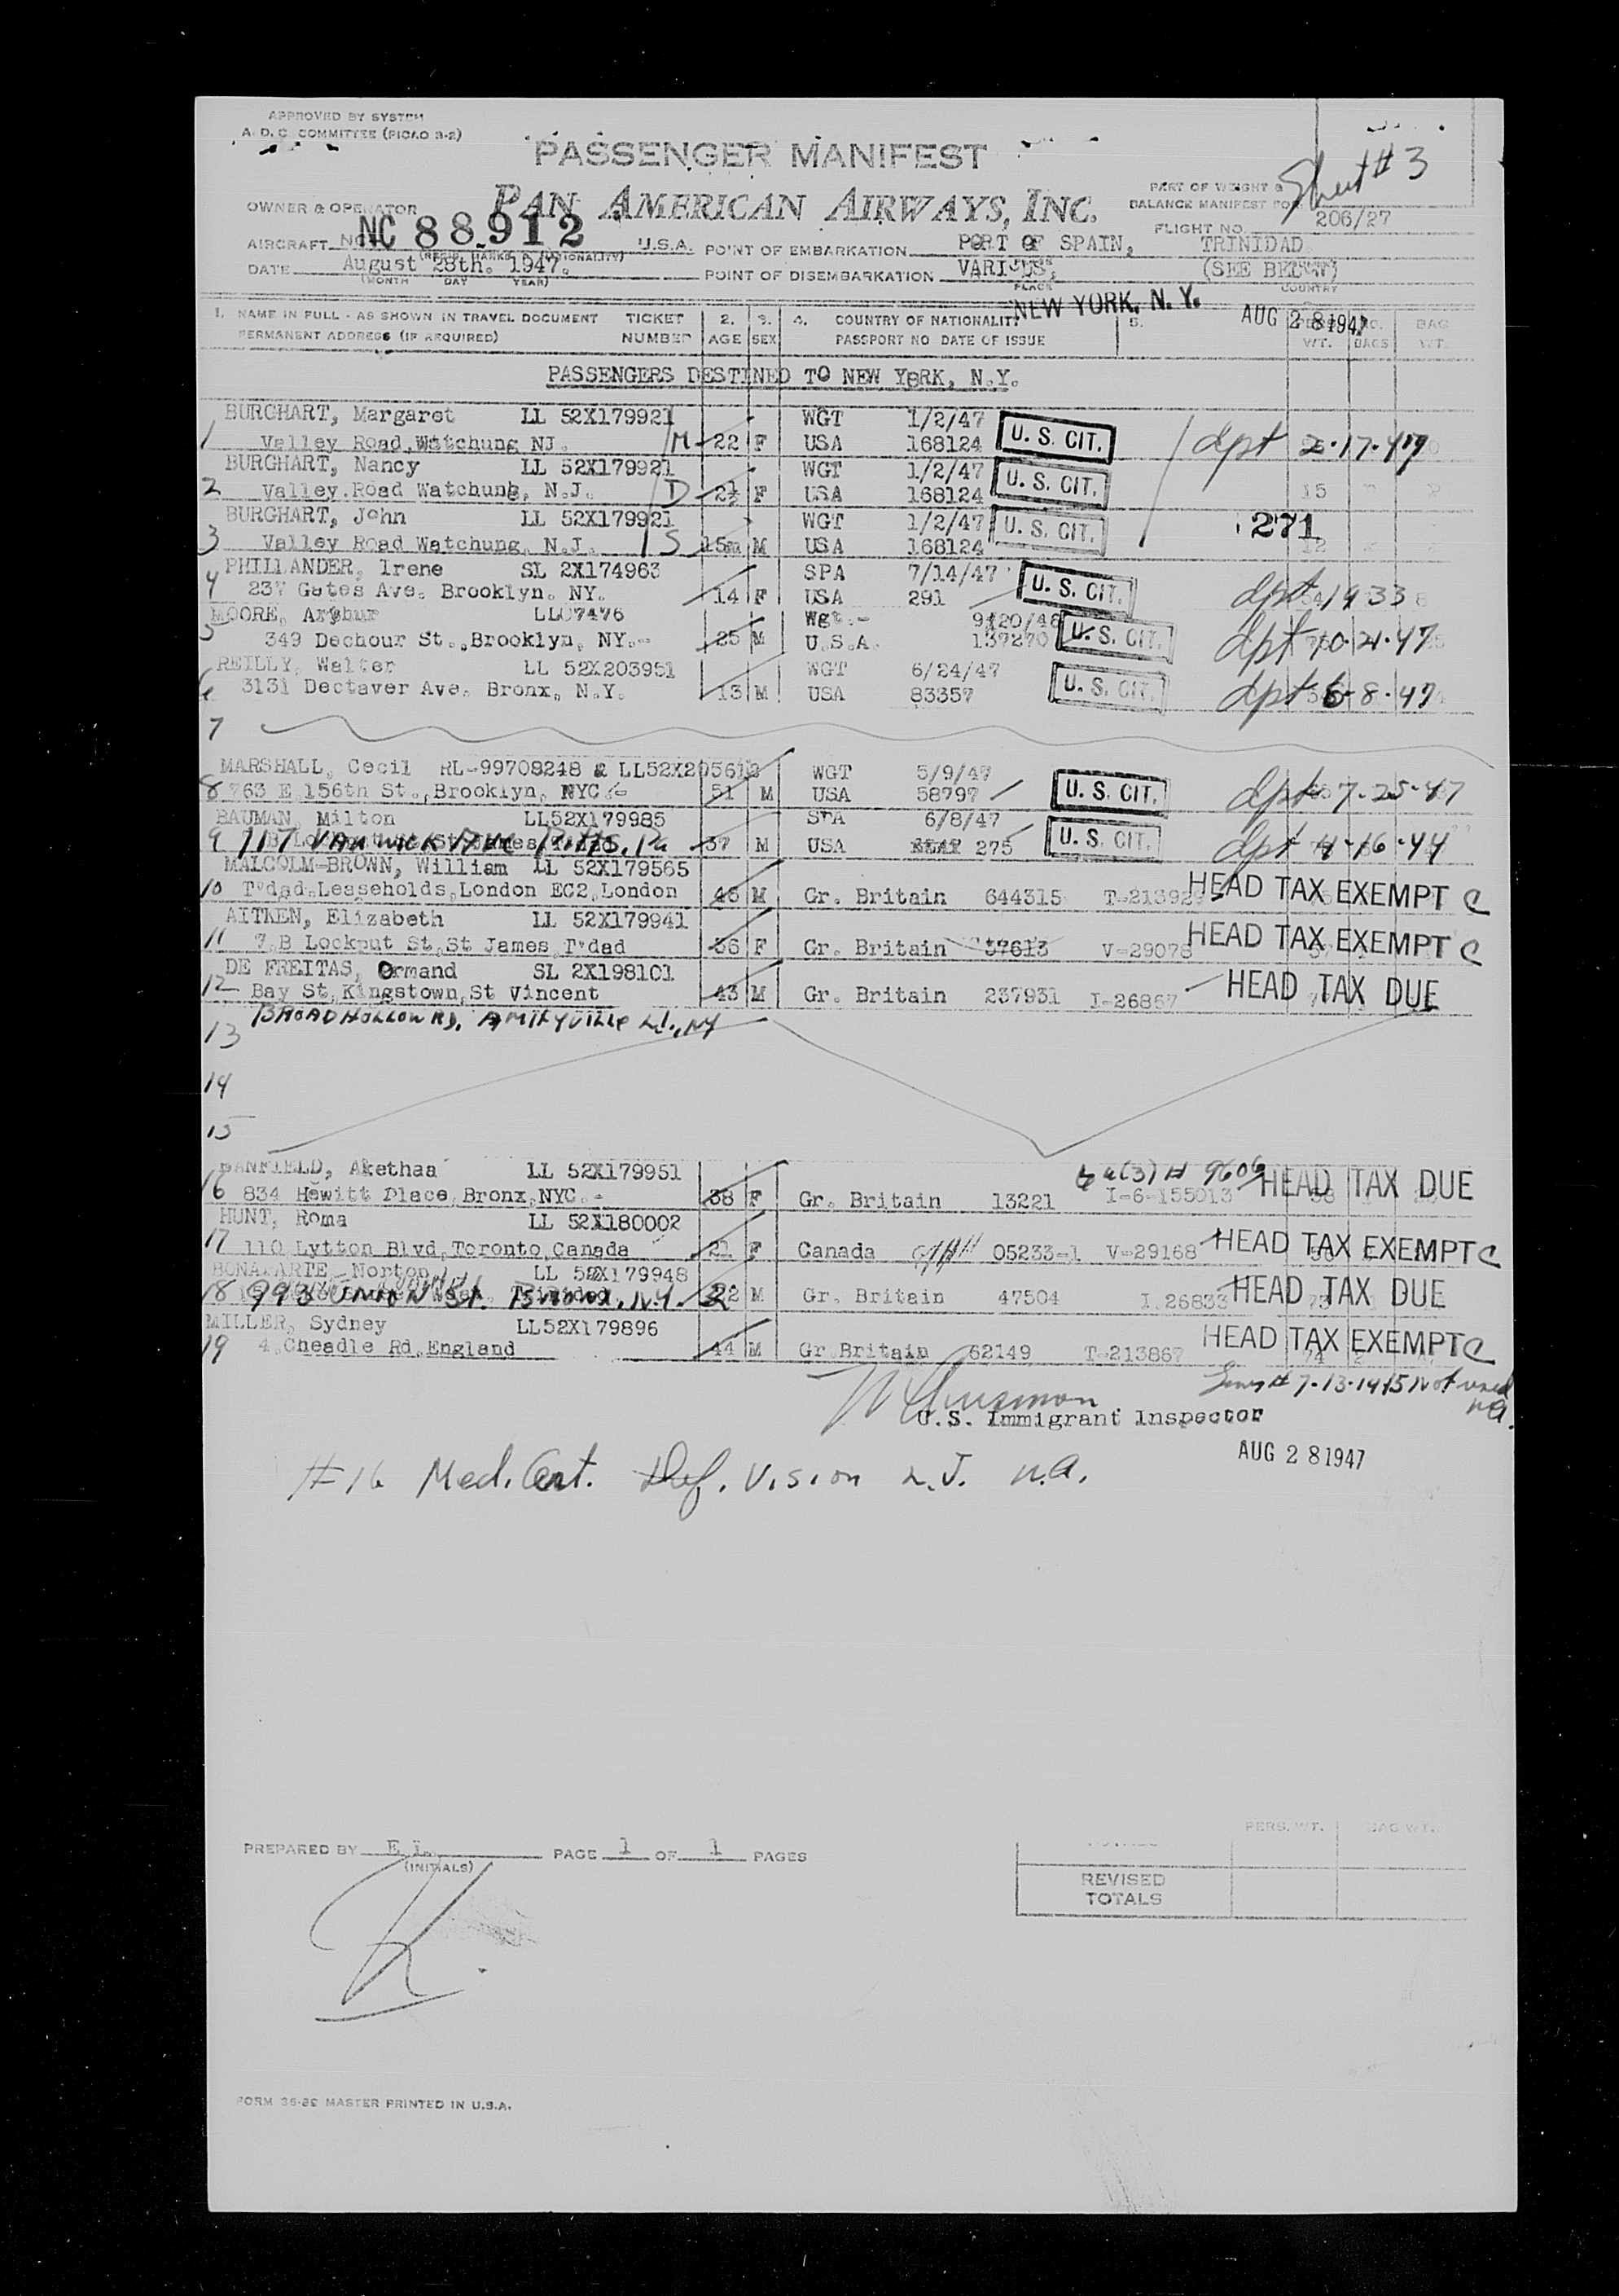 APPROVED BY SYSTEM
A. D. C. COMMITTEE (PICAO 3-2)
PASSENGER MANIFEST
Sheet # 3
PAN AMERICAN AIRWAYS, INC.
PART OF WEIGHT &
BALANCE MANIFEST FOR
OWNER & OPERATOR
FLIGHT NO. 206/27
AIRCRAFT NO. NC 88912 U.S.A. POINT OF EMBARKATION PORT OF SPAIN, TRINIDAD
DATE August 28th. 1947. POINT OF DISEMBARKATION VARIOUS, (SEE BELOW)
(MONTH DAY YEAR) PLACE COUNTRY
NEW YORK, N. Y. AUG 28 1947
1. NAME IN FULL - AS SHOWN IN TRAVEL DOCUMENT TICKET 2. 3. 4. COUNTRY OF NATIONALITY 5. BAG
PERMANENT ADDRESS (IF REQUIRED) NUMBER AGE SEX PASSPORT NO DATE OF ISSUE WT. BAGS WT.
PASSENGERS DESTINED TO NEW YORK, N.Y.
BURGHART, Margaret LL 52X179921 WGT 1/2/47 U. S. CIT.
1 Valley Road, Watchung NJ. M 22 F USA 168124 dpt 2-17-47
BURGHART, Nancy LL 52X179921 WGT 1/2/47 U. S. CIT.
2 Valley Road Watchung, N.J. D 2½ F USA 168124 15
BURGHART, John LL 52X179921 WGT 1/2/47 U. S. CIT. 271
3 Valley Road Watchung, N.J. S 15m M USA 168124 12
PHILLANDER, Irene SL 2X174963 SPA 7/14/47 U. S. CIT.
4 237 Gates Ave. Brooklyn. NY. 14 F USA 291 dpt 1933
MOORE, Arthur LL07476 Wgt.- 9/20/46 U. S. CIT.
5 349 Dechour St., Brooklyn, NY.- 25 M U.S.A. 137270 dpt 10-21-47
REILLY, Walter LL 52X203951 WGT 6/24/47 U. S. CIT.
6 3131 Dectaver Ave. Bronx, N.Y. 13 M USA 83357 dpt 6-8-47
7
MARSHALL, Cecil RL-99708248 & LL52X205612 WGT 5/9/47 U. S. CIT.
8 763 E 156th St., Brooklyn, NYC.- 51 M USA 58797 dpt 7-25-47
BAUMAN, Milton LL52X179985 SPA 6/8/47 U. S. CIT.
9 117 VAN WICK AVE Pitts. Pa 37 M USA 275 dpt 4-16-44
MALCOLM-BROWN, William LL 52X179565
10 T'dad Leaseholds, London EC2, London 46 M Gr. Britain 644315 T-213929 HEAD TAX EXEMPT C
AITKEN, Elizabeth LL 52X179941
11 7 B Lockput St, St James, T'dad 36 F Gr. Britain 37613 V-29078 HEAD TAX EXEMPT C
DE FREITAS, Ormand SL 2X198101
12 Bay St, Kingstown, St Vincent 43 M Gr. Britain 237931 I-26867 HEAD TAX DUE
BROADHOLLOW RD, AMITYVILLE L.I., NY
13
14
15
BANFIELD, Akethaa LL 52X179951 9606
16 834 Hewitt Place, Bronx, NYC.- 38 F Gr. Britain 13221 I-6-155013 HEAD TAX DUE
HUNT, Roma LL 52X180002
17 110 Lytton Blvd, Toronto, Canada 21 F Canada 05233-1 V-29168 HEAD TAX EXEMPT C
BONAPARTE, Norton LL 52X179948
18 993 UNION St. Bronx, N.Y. 22 M Gr. Britain 47504 I.26833 HEAD TAX DUE
MILLER, Sydney LL52X179896
19 4 Cheadle Rd, England 44 M Gr Britain 62149 T-213867 HEAD TAX EXEMPT C
Lines # 7-13-14-15 Not used
U.S. Immigrant Inspector
AUG 28 1947
#16 Med. Cert. Def. Vision
PERS. WT. BAG WT.
PREPARED BY E.L. PAGE 1 OF 1 PAGES
(INITIALS)
REVISED
TOTALS
FORM 36-22 MASTER PRINTED IN U.S.A.